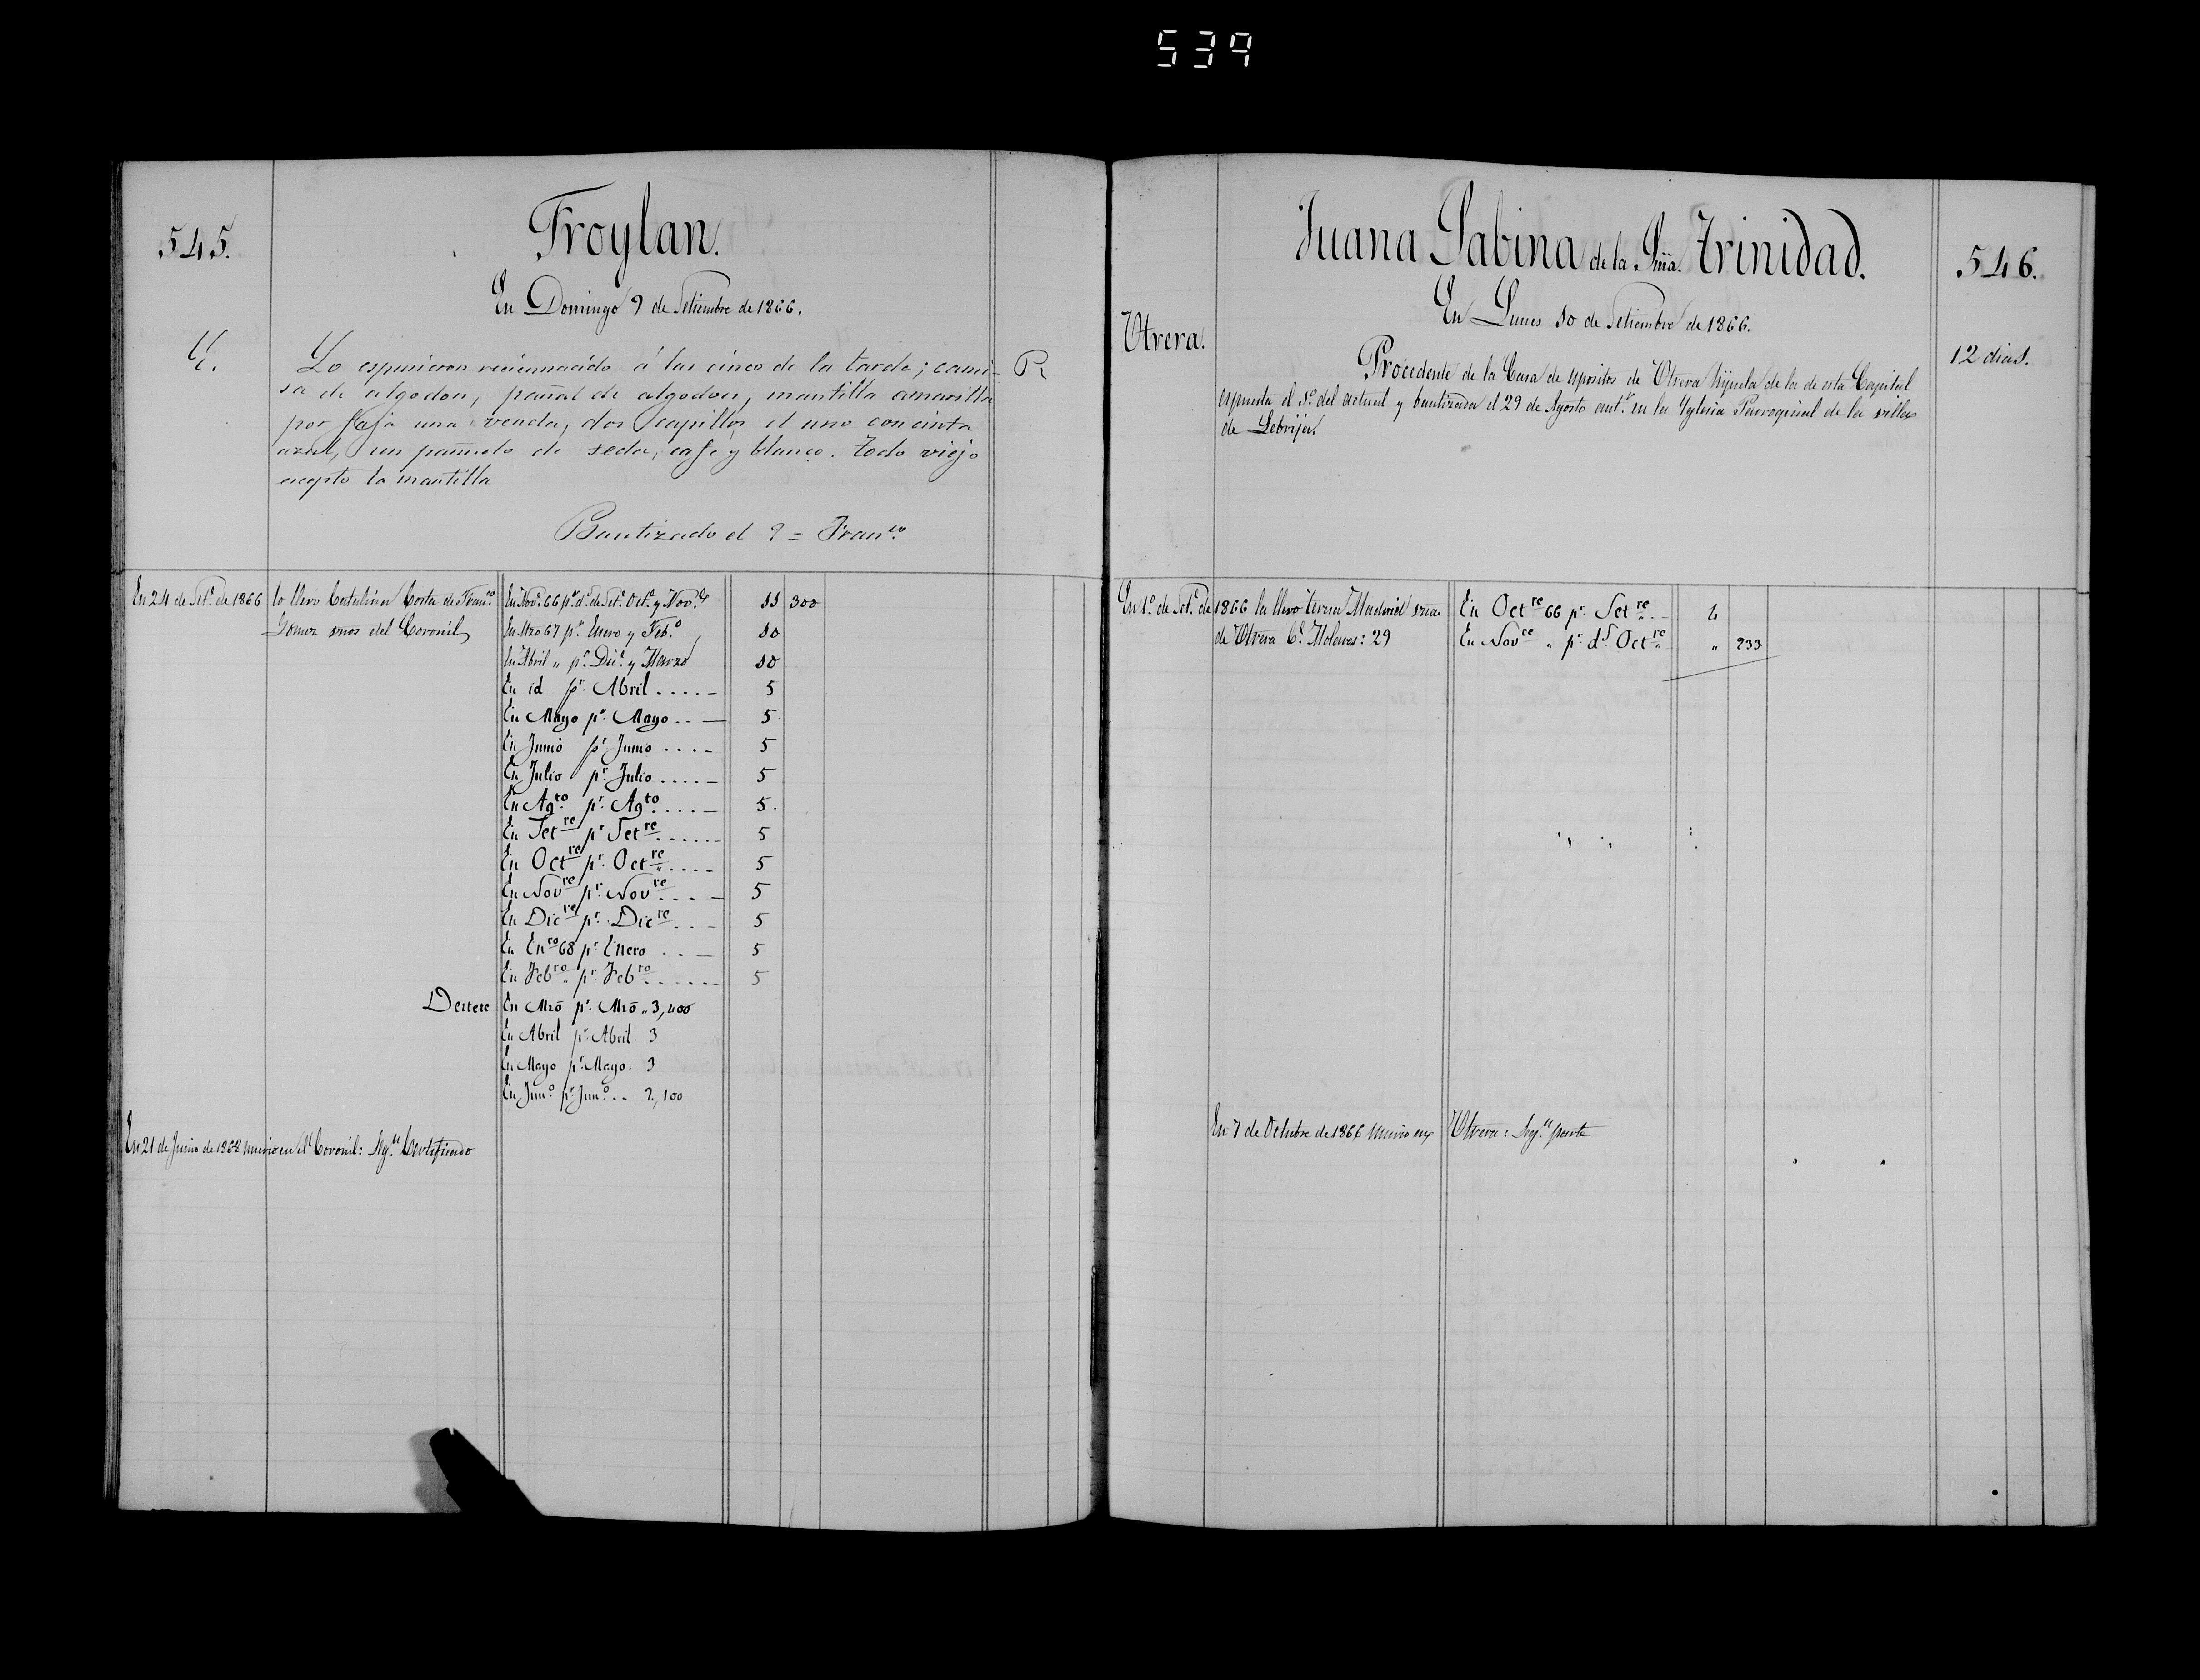 539
545.
Froylan.
En Domingo 9 de Setiembre de 1866.
Lo espusieron reciennacido á las cinco de la tarde; cami-
R
sa de algodon, pañal de algodon, mantilla amarilla
por faja una venda, dos capillos el uno con cinta
azul, un pañuelo de seda, cafe y blanco. todo viejo
escepto la mantilla
Bautizado el 9 = Franco.
En 24 de Sete. de 1866 lo llevo Catalina Costa de Franco.
Gomez vnos del Coronil
En Nove. 66 pr. d.s de Sete. Octe. y Nove. 11 300
En Mzo 67 pr. Enero y Febo. 10
En Abril „ pr. Dice. y Marzo 10
En id pr. Abril .... 5
En Mayo pr. Mayo .. 5
En Junio pr. Junio .... 5
En Julio pr. Julio .... 5
En Agto. pr. Agto. .... 5.
En Setre pr. Setre ..... 5
En Octre pr. Octre .... 5
En Novre pr. Novre ... 5
En Dicre pr. Dicre ... 5
En Enro 68 pr. Enero .. 5
En Febro. „ pr. Febro ...... 5
Destete En Mzo pr. Mzo „ 3,400
En Abril pr. Abril. 3
En Mayo pr. Mayo. 3
En Juno. pr. Juno. .. 2,100
En 21 de Junio de 1868 murio en el Coronil: Sgn. Certificado
Juana Sabina de la Sma. Trinidad.
546.
En Lunes 10 de Setiembre de 1866.
Utrera.
12 dias.
Procedente de la Casa de espositos de Utrera hijuela de la de esta Capital
espuesta el 1o. del actual y bautizada el 29 de Agosto antr. en la Yglesia Parroquial de la villa
de Lebrija.
En 1o. de Sete. de 1866 la llevo Teresa Madrid vna
de Utrera Ce. Molares: 29
En Octre 66 pr. Setre .. 4
En Novre „ pr. ds. Octre „ 933
En 7 de Octubre de 1866 murio en Utrera: Sgn. parte